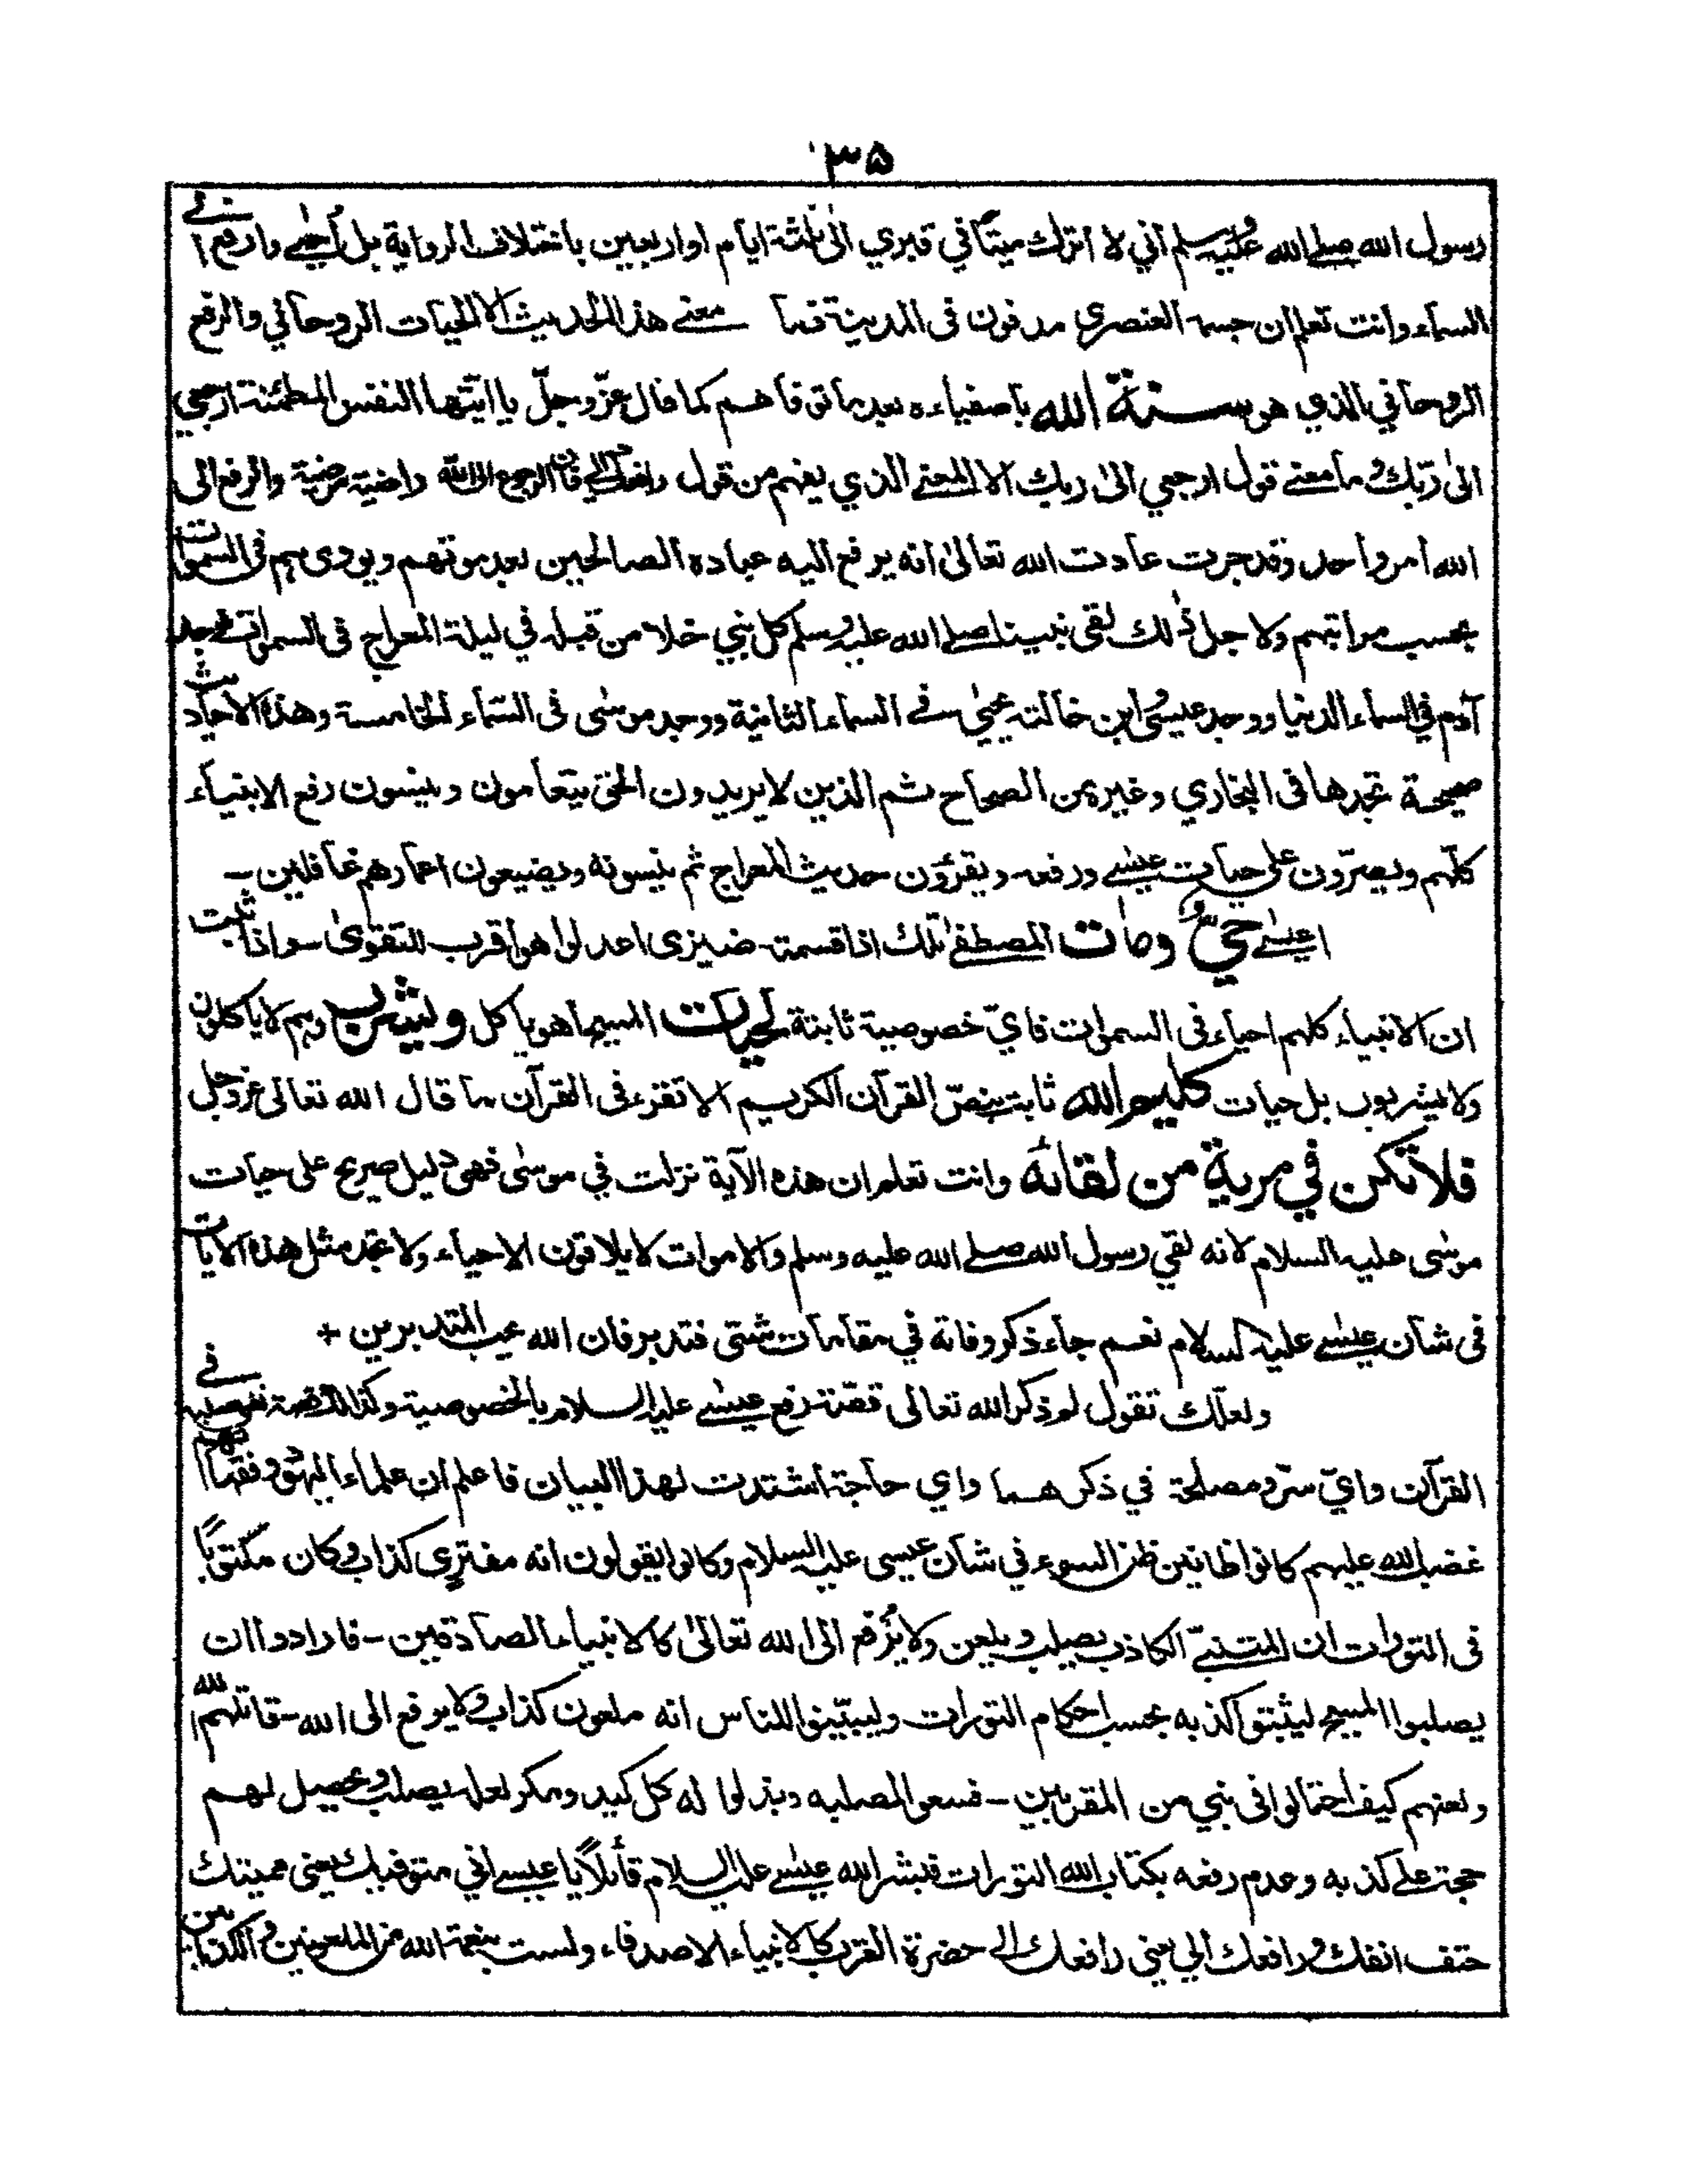 ٣٥
رسول الله صلى الله عليه وسلم اني لا اترك ميتا في قبري الى ثلثة ايام او اربعين باختلاف الرواية بل اُحيٰى وارفع الى
السماء وانت تعلم ان جسمه العنصري مدفون فى المدينة فما معنے هذا الحديث الا الحيات الروحاني والرفع
الروحاني الذي هو سنة الله باصفياءه بعد ما توفاهم كما قال عزّ وجلّ يا ايّتها النفس المطمئنة ارجعي
الىٰ ربّك وما معنے قول ارجعي الىٰ ربك الا المعنے الذي يفهم من قول رافعك اليّ فان الرجوع الى الله راضية مرضية والرفع الى
الله امر واحد وقد جرت عادت الله تعالىٰ انه يرفع اليه عباده الصالحين بعد موتهم ويودى بهم فى السمٰوات
بحسب مراتبهم ولاجل ذٰلك لقى نبينا صلے الله عليه وسلم كل نبي خلا من قبله في ليلة المعراج فى السمٰوات فوجد
آدم في السماء الدنيا ووجد عيسىٰ وابن خالته يحيىٰ فے السماء الثانية ووجد موسىٰ فى السّماء الخامسة وهذه الاحاديث
صحيحة تجدها فى البخاري وغيره من الصحاح ثم الذين لا يريدون الحق يتعامون وينسون رفع الانبياء
كلّهم ويصرّون على حيات عيسٰے ورفعه ويقرؤن حديث المعراج ثم ينسونه ويضيعون اعمارهم غافلين –
اعيسٰے حيّ ومات المصطفےٰ تلك اذا قسمة ضيزى اعدلوا هو اقرب للتقوىٰ – واذا ثبت
ان الانبياء كلهم احياء فى السموات فايّ خصوصية ثابتة لحيات المسيح اهو يأكل ويشرب وهم لا يأكلون
ولا يشربون بل حيات كليم الله ثابت بنصّ القرآن الكريم الا تقرء فى القرآن ما قال الله تعالى عزّ وجل
فلا تكن في مرية من لقائه وانت تعلم ان هذه الآية نزلت في موسىٰ فهى دليل صريح على حيات
موسٰى عليه السلام لانه لقي رسول الله صلے الله عليه وسلم والاموات لا يلاقون الاحياء ولا تجد مثل هذه الآيات
فى شان عيسٰے عليه السلام نعم جاء ذكر وفاته في مقامات شتى فتدبر فان الله يحب المتدبرين +
ولعلّك تقول لم ذكر الله تعالى قصّة رفع عيسٰے عليه السلام بالخصوصية وكذا القصة نفي صلبه فے
القرآن وايّ سرّ ومصلحة في ذكرهما واي حاجة اشتدت لهذا البيان فاعلم ان علماء اليهود وفقهاءهم
غضب الله عليهم كانوا ظانين ظن السوء في شان عيسى عليه السلام وكانوا يقولون انه مفتري كذاب وكان مكتوبًا
فى التورات ان المتنبّے الكاذب يصلب ويلعن ولا يُرفع الى الله تعالىٰ كالانبياء الصادقين – فارادوا ان
يصلبوا المسيح ليثبتوا كذبه بحسب احكام التورات وليبيّنوا للناس انه ملعون كذاب ولا يرفع الى الله – قاتلهم الله
ولعنهم كيف احتالوا فى نبي من المقربين – فسعوا لصلبه وبذلوا له كل كيد ومكر لعله يصلب ويحصل لهم
حجة على كذبه وعدم رفعه بكتاب الله التورات فبشر الله عيسٰے عليه السلام قائلًا يا عيسٰے اني متوفيك يعنى مميتك
حتف انفك ورافعك الي يعني رافعك الى حضرة القرب كالانبياء الاصدقاء ولست بنعمة الله من الملعونين والكذابين